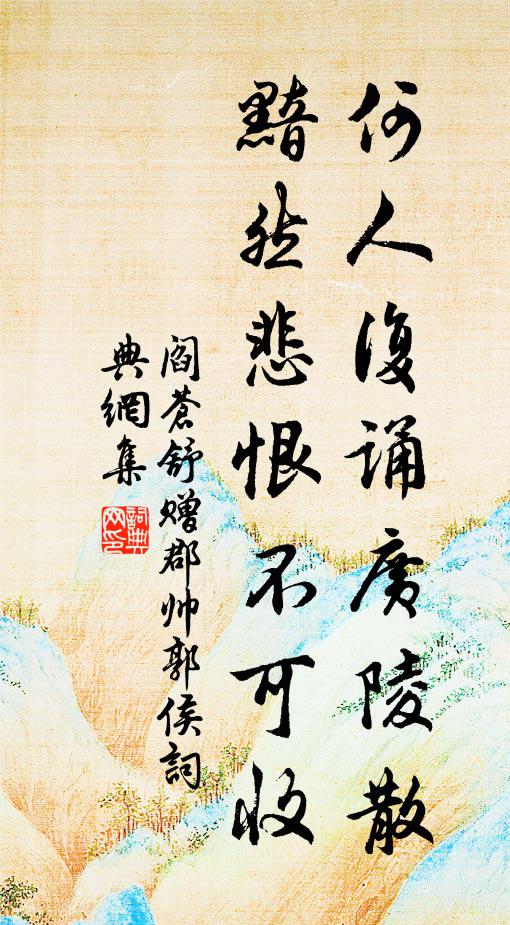 何人復誦廣陵散
黯然悲恨不可收
閻蒼舒贈郡帅郭侯詞
典網集
詞典网印